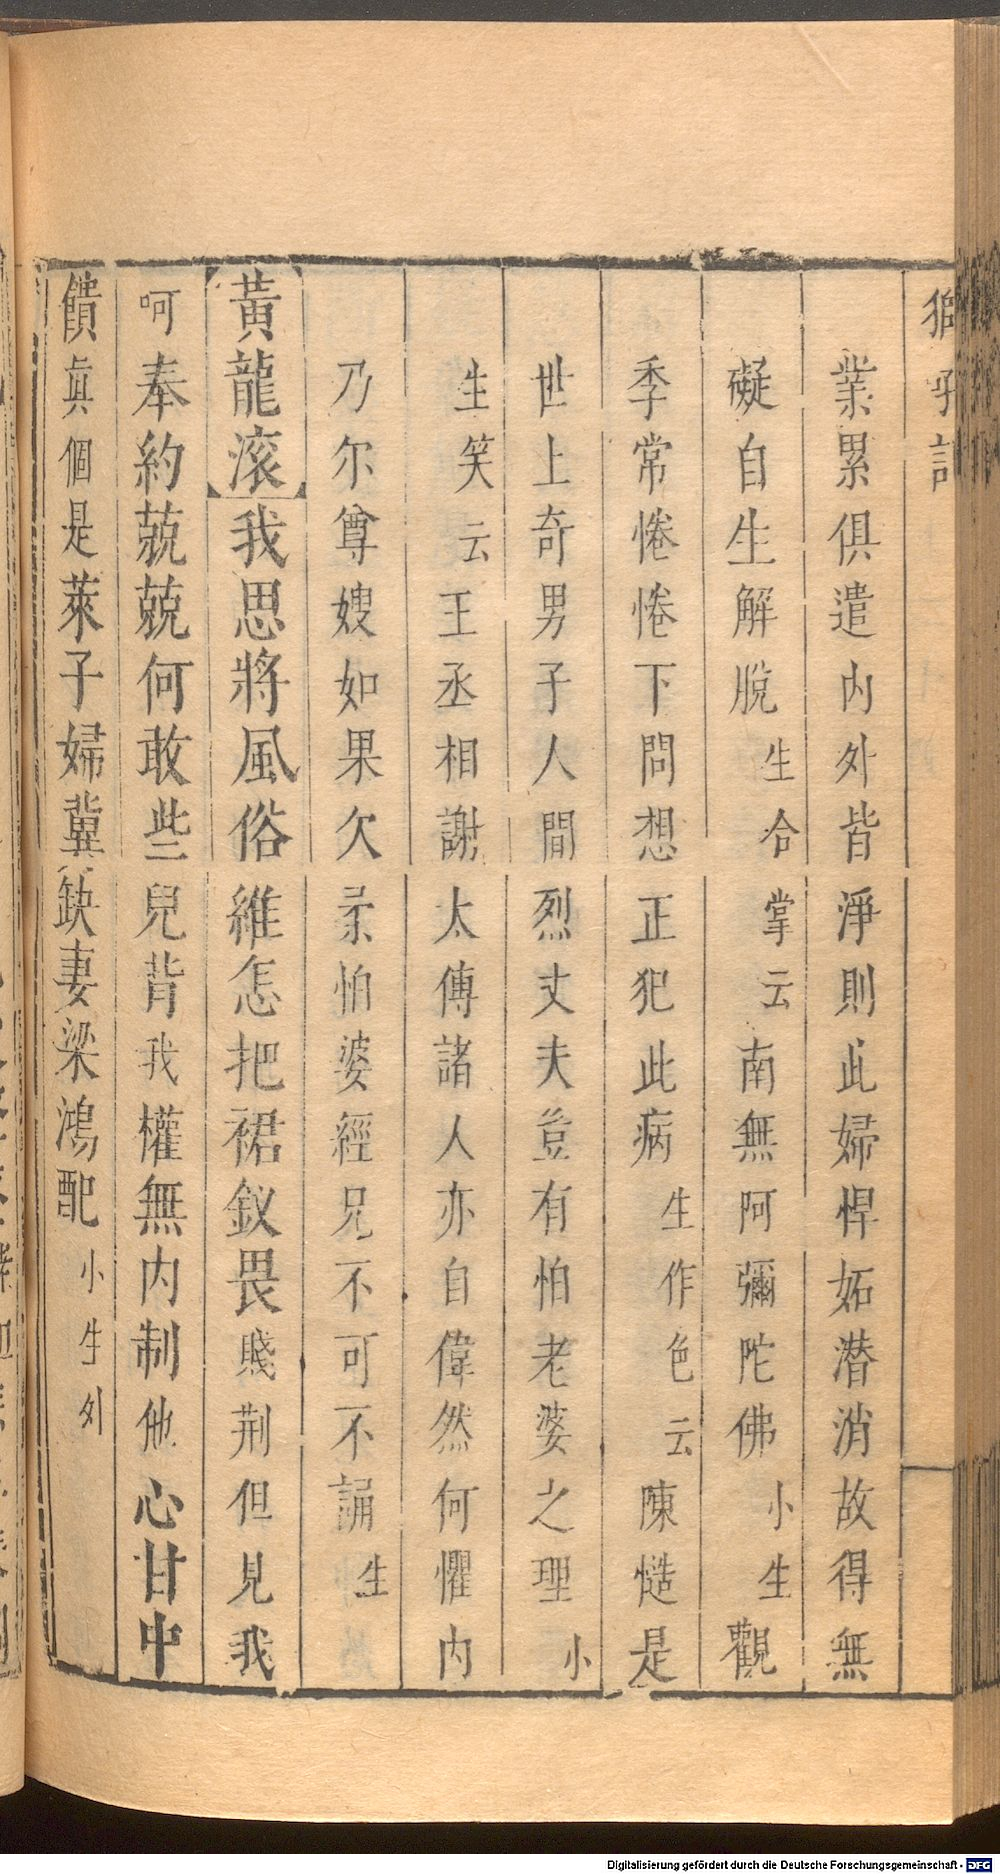 獅吼記
業累俱遣内外皆淨則此婦悍妬潛消故得無
礙自生解脫生合掌云南無阿彌陀佛小生觀
季常惓惓下問想正犯此病生作色云陳慥是
世上奇男子人間烈丈夫豈有怕老婆之理小
生笑云王丞相謝太傅諸人亦自偉然何懼内
乃尔尊嫂如果欠柔怕婆經兄不可不誦生
黄龍滚我思將風俗維怎把裙釵畏賤荆但見我
呵奉約兢兢何敢些兒背我權無内制他心甘中
饋真個是萊子婦冀缺妻梁鴻配小生外
Digitalisierung gefördert durch die Deutsche Forschungsgemeinschaft - DFG